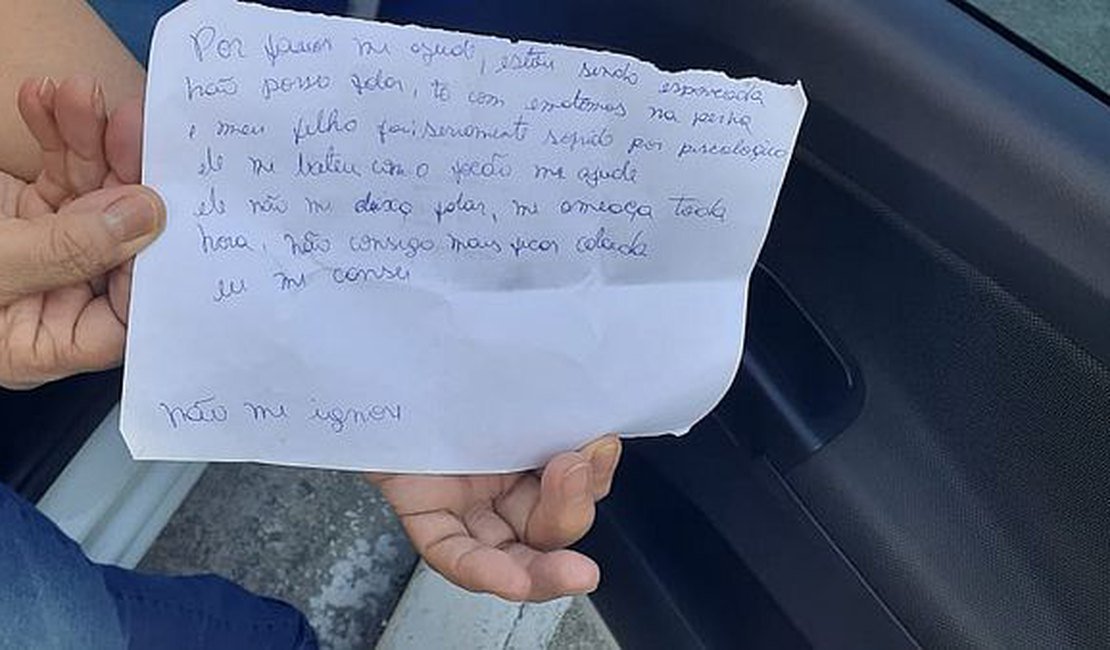 Por favor me ajude, estou sendo espancada
não posso falar, to com ematomas na perna
e meu filho foi seriamente sopido por piscologico
ele me bateu com o facão me ajude
ele não me deixa falar, me ameaça toda
hora, não consigo mais ficar calada
eu me cansei
não me ignore